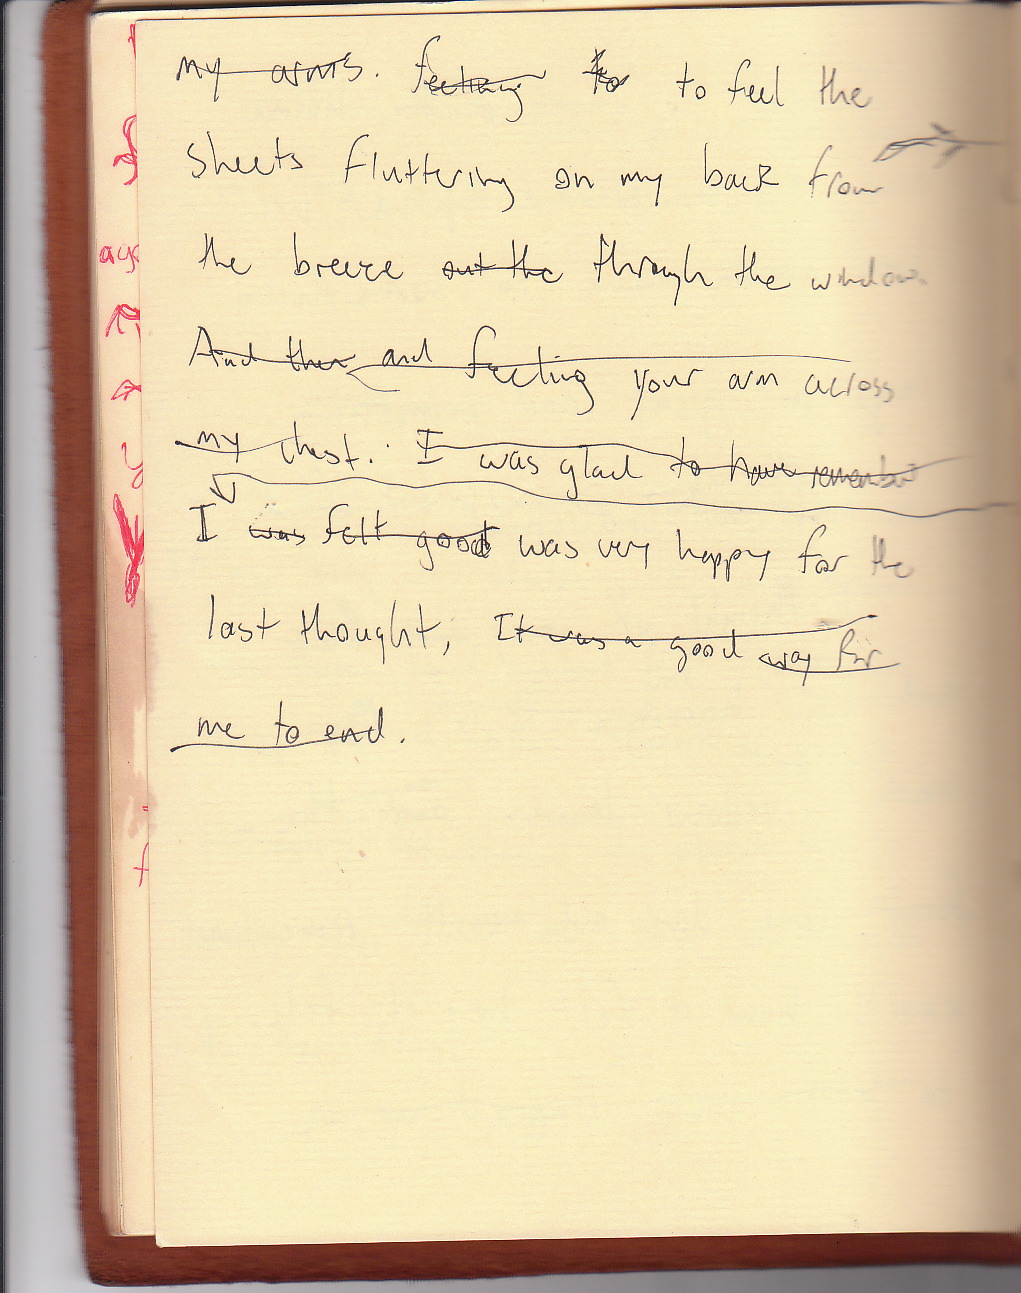 my arms. feeling to to feel the
sheets fluttering on my back from
the breeze out the through the window.
And then and feeling your arm across
my chest. I was glad to have remember
I was felt good was very happy for the
last thought, It was a good way for
me to end.